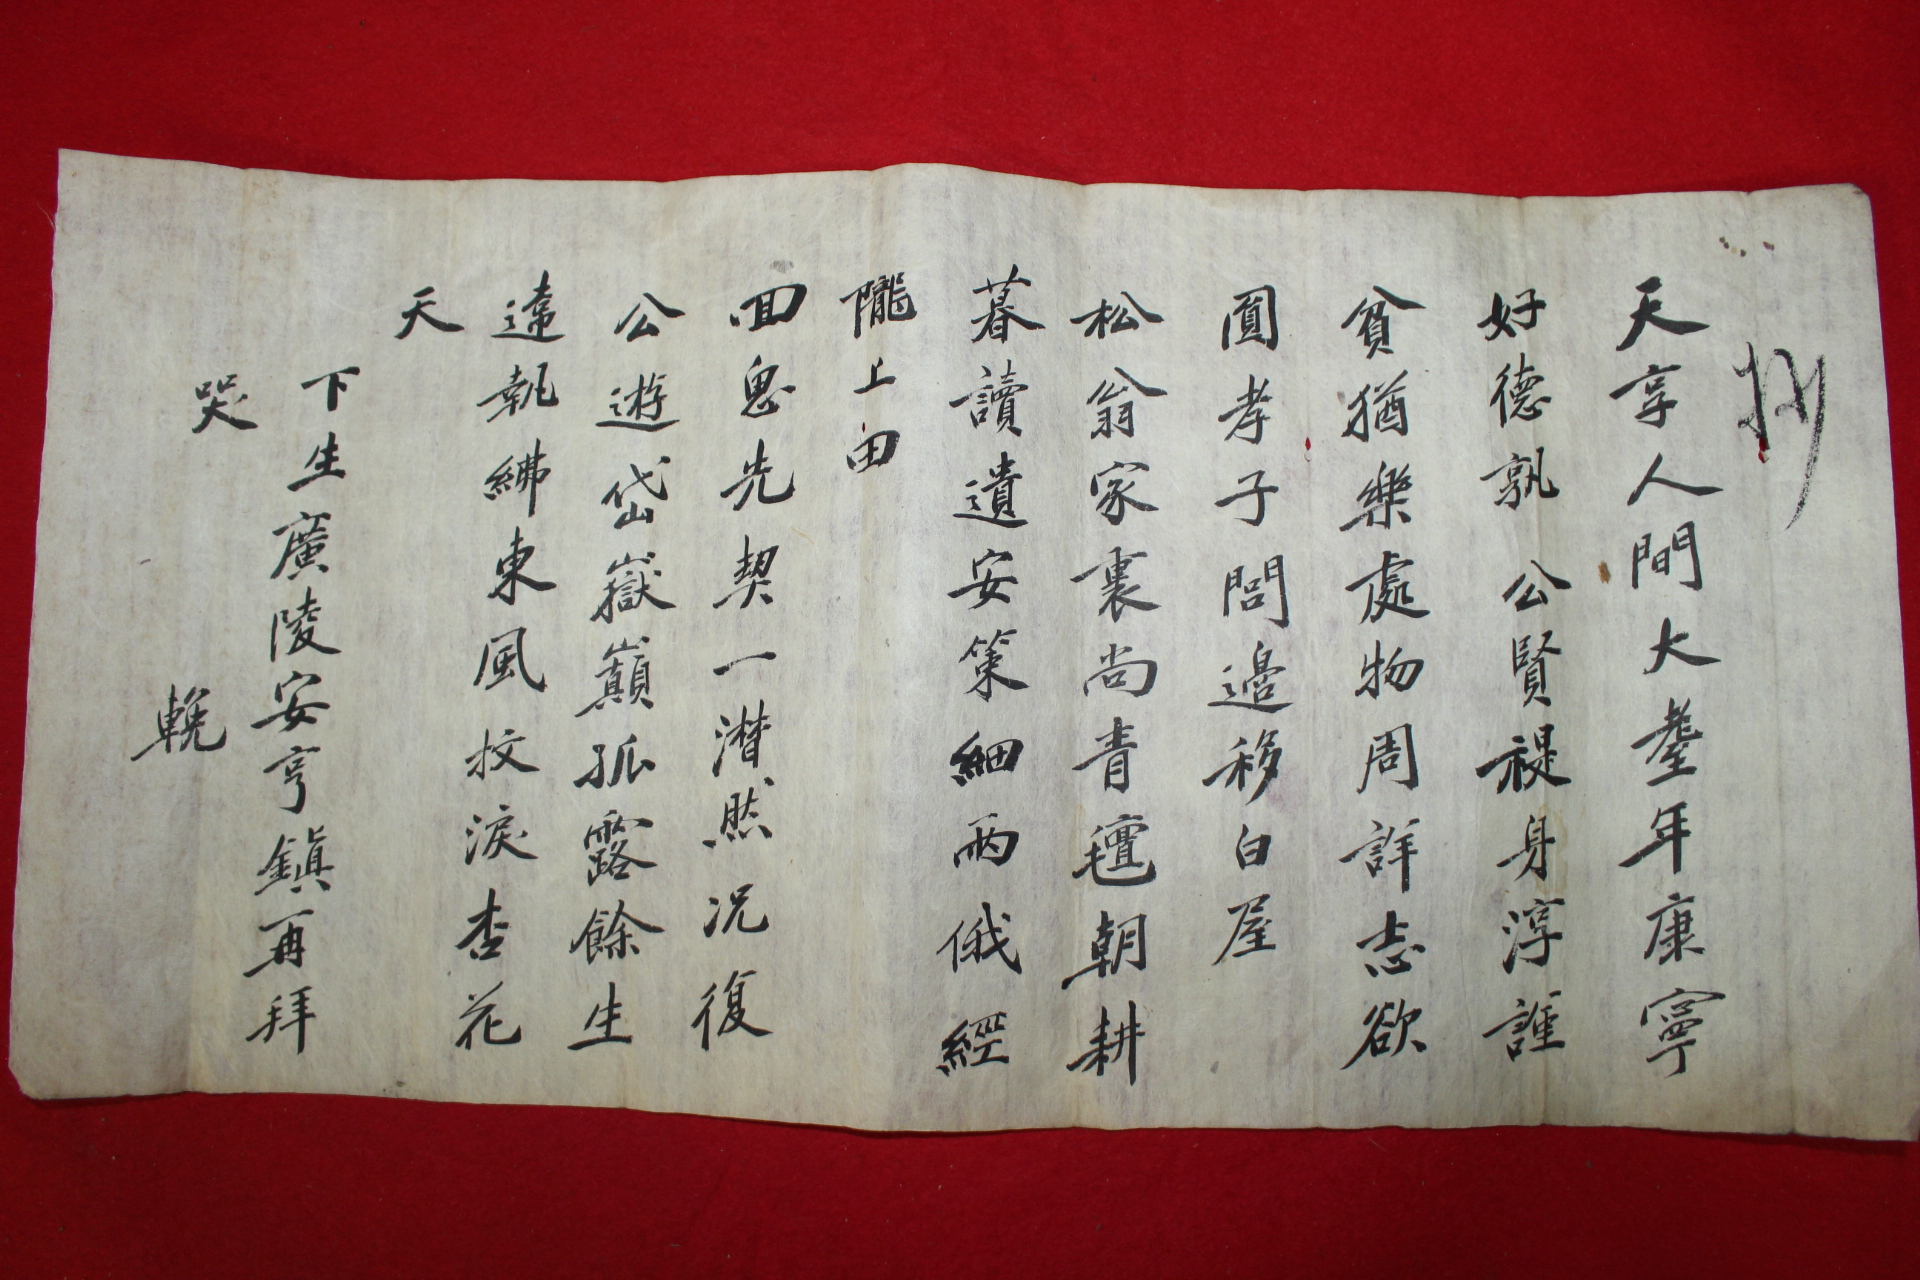 抄
天享人間大耋年康寧
好德孰 公賢禔身淳謹
貧猶樂處物周詳志欲
圓孝子閭邊移白屋
松翁家裏尚青氊朝耕
暮讀遺安策細雨俄經
隴上田
回思先契一潸然况復
公遊岱嶽巔孤露餘生
違執紼東風抆淚杏花
天
下生廣陵安亨鎭再拜
哭 輓